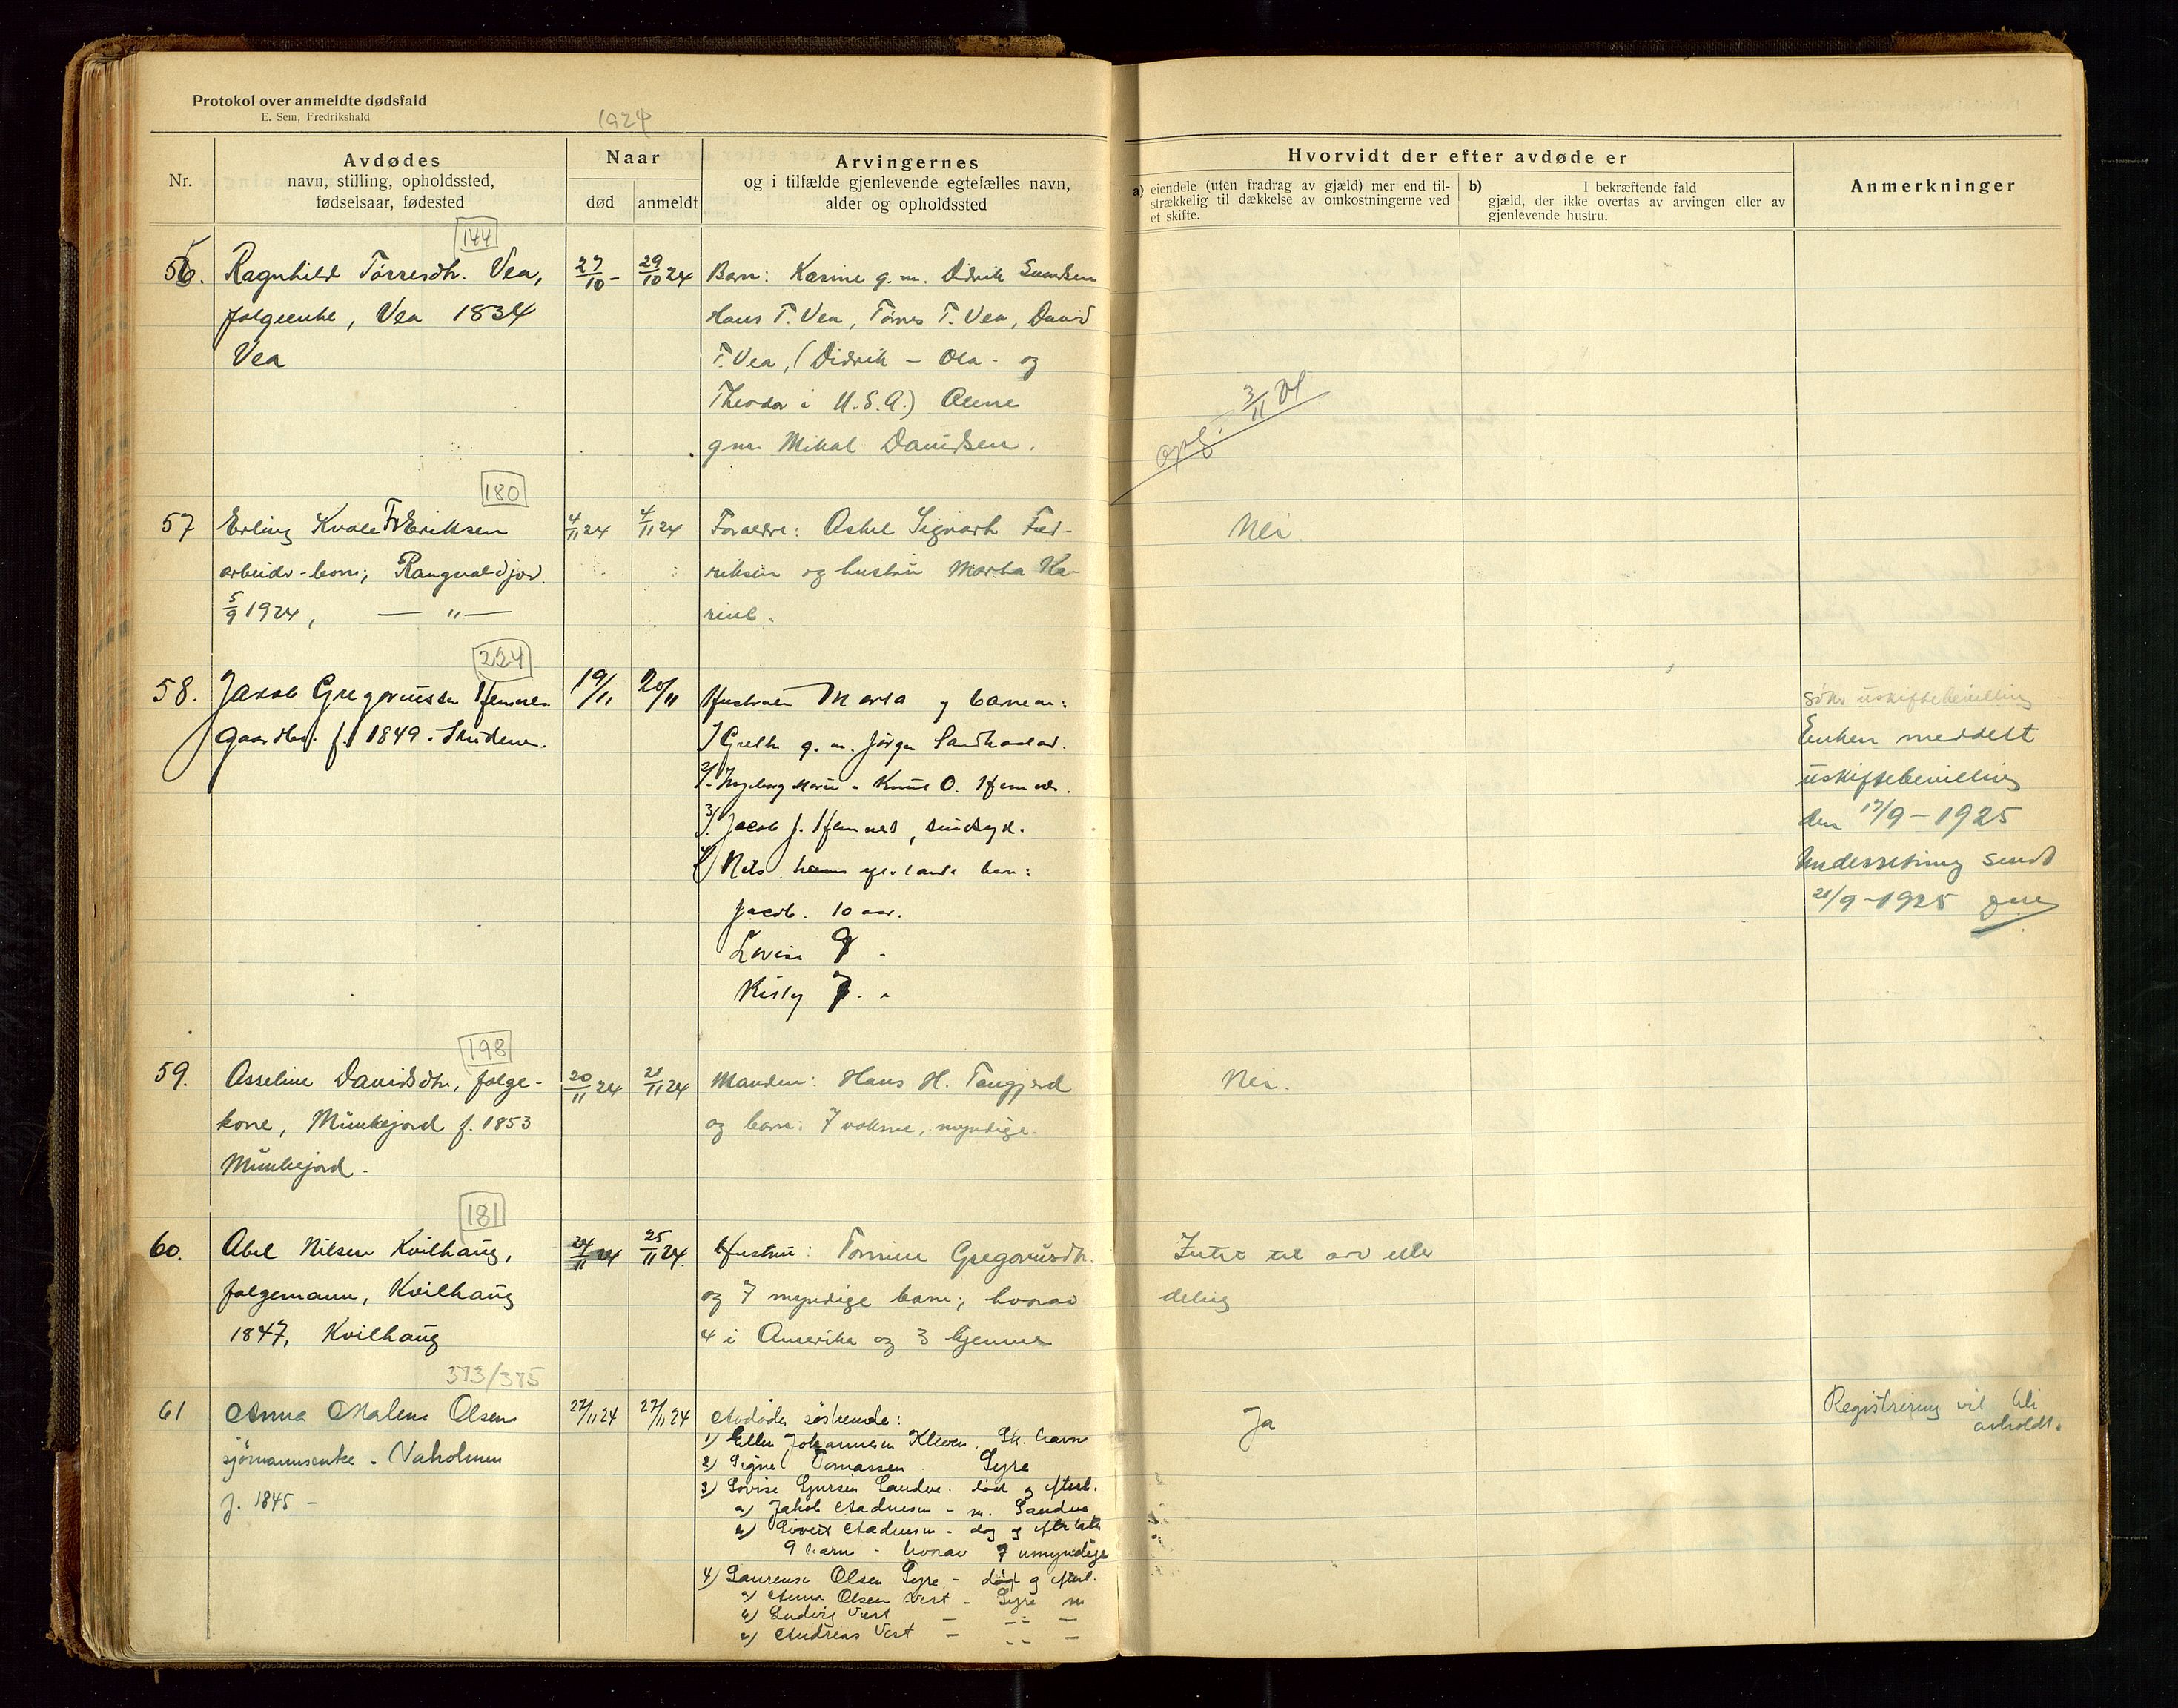 Protokol over anmeldte dødsfald
E. Sem, Fredrikshald
1924
Nr.
Avdødes
navn, stilling, opholdssted,
fødselsaar, fødested
Naar
død
anmeldt
Arvingernes
og i tilfælde gjenlevende egtefælles navn,
alder og opholdssted
Hvorvidt der efter avdøde er
a) eiendele (uten fradrag av gjæld) mer end til-
strækkelig til dækkelse av omkostningerne ved
et skifte.
b) I bekræftende fald
gjæld, der ikke overtas av arvingen eller av
gjenlevende hustru.
Anmerkninger
144
56. Ragnhild Tørresdtr. Vea,
folgeenke, Vea 1834
Vea
27/10 -
29/10 24
Barn: Karine g. m. Didrik
Hans T. Vea, Tørres T. Vea, David
T. Vea, (Didrik - Ola - og
Theodor i U.S.A.) Anne
gm. Mikal Davidsen.
3/11
180
57 Erling Kvale Fr Eriksen
arbeider-barn; Rangvaldjor.
5/9 1924, — " —
4/11 24
4/11 24
Foraldre: Askel Sigvart Fred-
riksen og hustru Marta Ka-
rine.
Nei.
224
58. Jakob Gregoriussen Hemnes
gaardbr. f. 1849. Skudenes.
19/11
20/11
Hustruen Marta og barnene:
1) Grethe g. m. Jørgen Sandhaaland.
2) Ingeborg Marie - Knut O. Hemnes.
3) Jacob J. Hemnes, sindsyk.
4) Nels hans efterlatte barn:
Jacob. 10 aar.
Lovise 9 -
Kisty 7. -
Søker uskiftebevilling
Enken meddelt
uskiftebevilling
den 17/9 - 1925
Underretning sendt
21/9 - 1925
198
59. Asseline Davidsdtr, folge-
kone, Munkejord f. 1853
Munkejord.
20/11 24
21/11 24
Manden: Hans H. Tangjerd
og barn: 7 voksne, myndige.
Nei.
181
60. Abel Nilsen Kvilhaug,
folgemann, Kvilhaug
1847, Kvilhaug
24/11 24
25/11 24.
Hustru: Tomine Gregoriusdtr.
og 7 myndige barn; hvorav
4 i Amerika og 3 hjemme
Intet til arv eller
deling
373/375
61 Anna Malene Olsen
sjømannsenke. Vaholmen
f. 1845 -
27/11 24
27/11 24
Avdødes søskende:
1) Ellen Johannesen Kleven, Sk. havn
2) Signe Tomassen Syre
3) Lovise Sandve. død og efterl.
a) Jakob Aadnesen - m. Sandve
b) Sivert Aadnesen - død og efterlatt
9 barn - hvorav 7 umyndige
4) Laurense Olsen Syre - død og efterl.
a) Anna Olsen Vest - Syre m
b) Ludvig Vest — -"- —
c) Andreas Vest — -"- —
Ja
Registrering vil bli
avholdt.